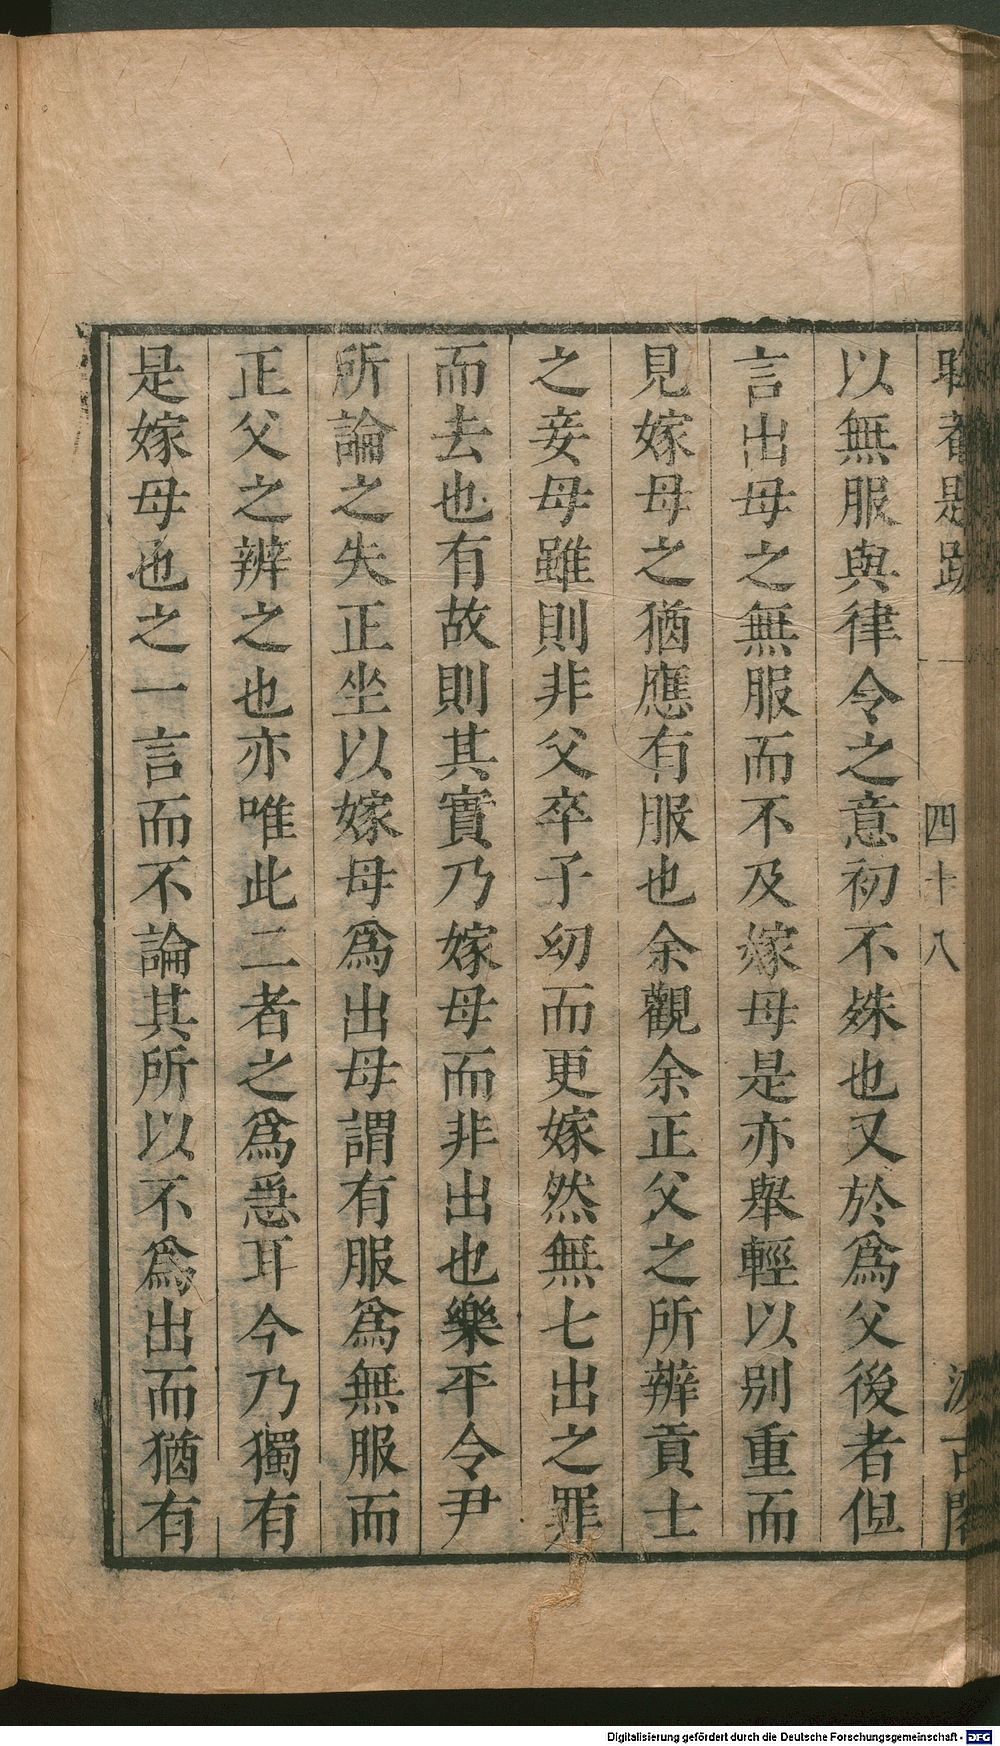 四十八
以無服與律令之意初不殊也又於爲父後者但
言出母之無服而不及嫁母是亦舉輕以别重而
見嫁母之猶應有服也余觀余正父之所辨貢士
之妾母雖則非父卒子㓜而更嫁然無七出之罪
而去也有故則其實乃嫁母而非出也樂平令尹
所論之失正坐以嫁母爲出母謂有服爲無服而
正父之辨之也亦唯此二者之爲急耳今乃獨有
是嫁母也之一言而不論其所以不爲出而猶有
Digitalisierung gefördert durch die Deutsche Forschungsgemeinschaft - DFG